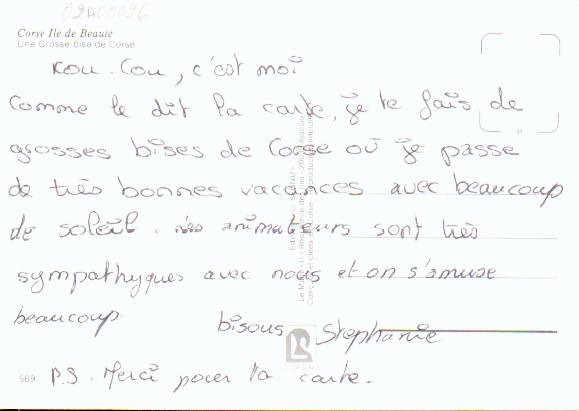 02A00096
Corse Ile de Beauté
Une Grosse bise de Corse
Kou. Cou, c'est moi
Comme le dit la carte, je te fais de
grosses bises de Corse où je passe
de très bonnes vacances avec beaucoup
de soleil. Les animateurs sont très
sympathyques avec nous et on s'amuse
beaucoup.
bisous Stephanie
569 P.S. Merci pour la carte.